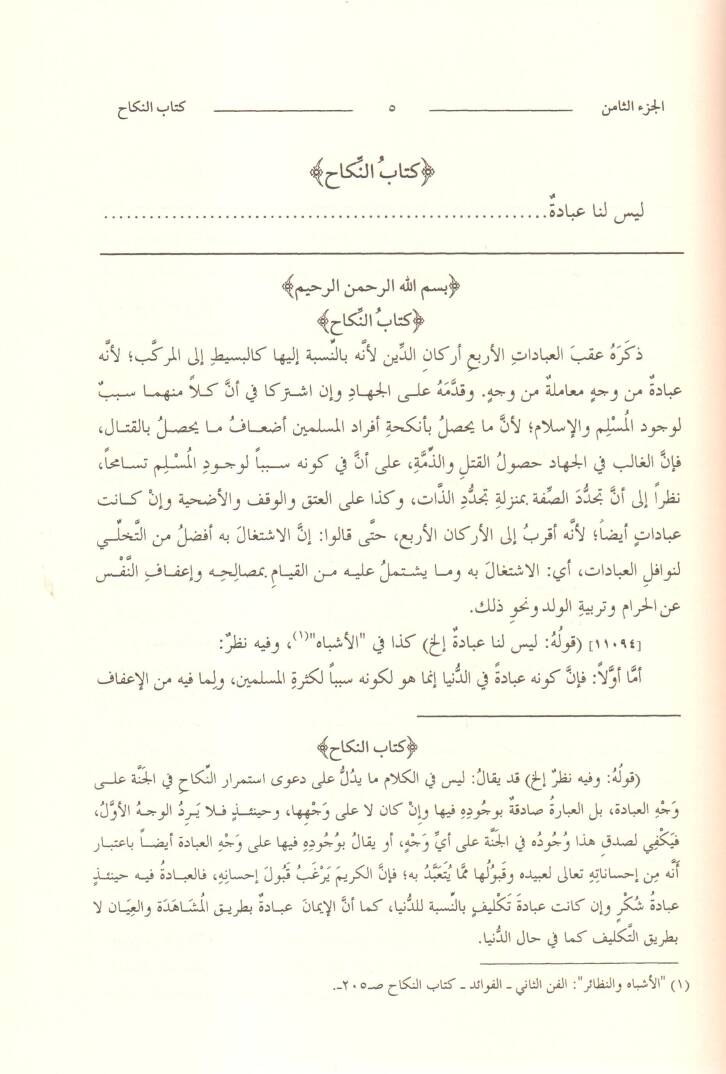 الجزء الثامن ــــــــــــ ٥ ــــــــــــ كتاب النكاح
﴿كتابُ النِّكاح﴾
ليس لنا عبادةٌ......................................................
﴿بسم الله الرحمن الرحيم﴾
﴿كتابُ النِّكاح﴾
ذكَرَهُ عقبَ العباداتِ الأربعِ أركانِ الدِّين لأنه بالنِّسبة إليها كالبسيطِ إلى المركَّب؛ لأنه
عبادةٌ من وجهٍ معاملةٌ من وجهٍ. وقدَّمَهُ على الجهادِ وإن اشتركا في أنَّ كلاً منهما سببٌ
لوجود المُسْلِم والإسلام؛ لأنَّ ما يحصلُ بأنكحةِ أفراد المسلمين أضعافُ ما يحصلُ بالقتال،
فإنَّ الغالب في الجهاد حصولُ القتلِ والذِّمَّةِ، على أنَّ في كونه سبباً لوجودِ المُسْلِم تسامحاً،
نظراً إلى أنَّ تجدُّدَ الصِّفة بمنزلةِ تجدُّدِ الذَّات، وكذا على العتق والوقف والأضحية وإنْ كانت
عباداتٍ أيضاً؛ لأنه أقربُ إلى الأركان الأربع، حتَّى قالوا: إنَّ الاشتغالَ به أفضلُ من التَّخلِّي
لنوافلِ العبادات، أي: الاشتغالَ به وما يشتملُ عليه من القيامِ بمصالحِه وإعفافِ النَّفْس
عن الحرام وتربيةِ الولد ونحوِ ذلك.
[١١٠٩٤] (قولُهُ: ليس لنا عبادةٌ إلخ) كذا في "الأشباه"(١)، وفيه نظرٌ:
أمَّا أوَّلاً: فإنَّ كونه عبادةً في الدُّنيا إنما هو لكونه سبباً لكثرةِ المسلمين، ولِما فيه من الإعفاف
﴿كتاب النكاح﴾
(قولُهُ: وفيه نظرٌ إلخ) قد يقالُ: ليس في الكلام ما يدُلُّ على دعوى استمرار النِّكاحِ في الجَنَّة على
وَجْهِ العبادة، بل العبارةُ صادقةٌ بوجُودِهِ فيها وإنْ كان لا على وَجْهِها، وحينئذٍ فلا يَرِدُ الوجهُ الأوَّلُ،
فيَكْفِي لصدقِ هذا وُجُودُه في الجَنَّة على أيِّ وَجْهٍ، أو يقالُ بوُجُودِهِ فيها على وَجْهِ العبادة أيضاً باعتبار
أنَّه مِن إحساناتِهِ تعالى لعبيده وقَبُولُها ممَّا يُتَعَبَّدُ به؛ فإنَّ الكريمَ يَرْغَبُ قَبُولَ إحسانِهِ، فالعبادةُ فيه حينئذٍ
عبادةُ شُكْرٍ وإن كانت عبادةَ تَكْليفٍ بالنِّسبة للدُّنيا، كما أنَّ الإيمانَ عبادةٌ بطريقِ المُشَاهَدَة والعِيَان لا
بطريق التَّكليف كما في حال الدُّنيا.
(١) "الأشباه والنظائر": الفن الثاني - الفوائد - كتاب النكاح صـ٢٠٥ـ.